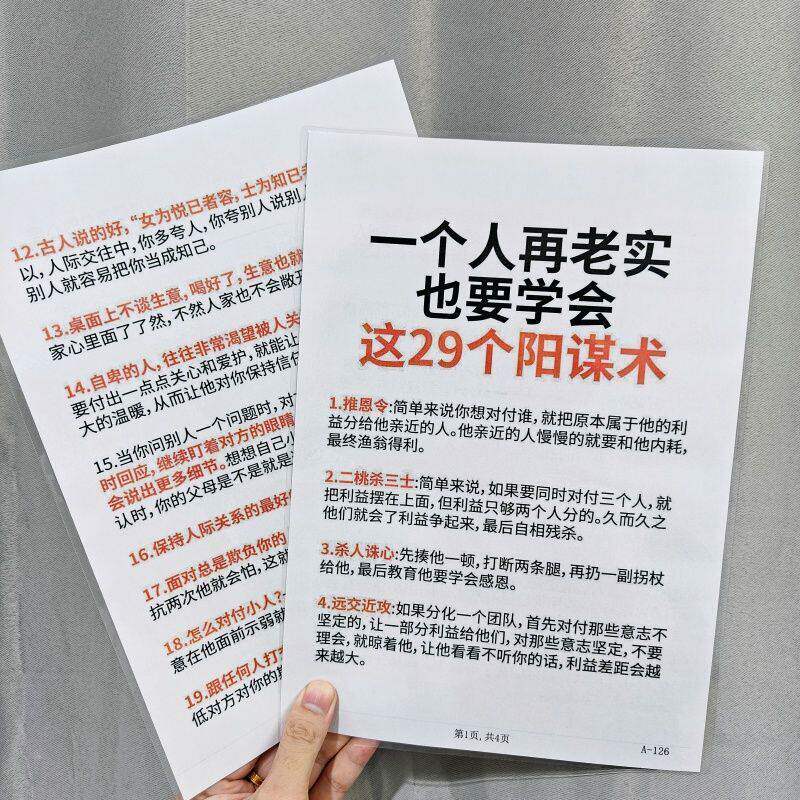 12.古人说的好,“女为悦已者容,士为知已
以,人际交往中,你多夸人,你夸别人说别
别人就容易把你当成知己。
13.桌面上不谈生意,喝好了,生意也就
家心里面了了然,不然人家也不会敞开
14.自卑的人,往往非常渴望被人关
要付出一点点关心和爱护,就能让
大的温暖,从而让他对你保持信任
15.当你问别人一个问题时,对
时回应,继续盯着对方的眼睛
会说出更多细节。想想自己小
认时,你的父母是不是就是
16.保持人际关系的最好
17.面对总是欺负你的
抗两次他就会怕,这就
18.怎么对付小人?
意在他面前示弱就
19.跟任何人打
低对方对你的
一个人再老实
也要学会
这29个阳谋术
1.推恩令:简单来说你想对付谁,就把原本属于他的利
益分给他亲近的人。他亲近的人慢慢的就要和他内耗,
最终渔翁得利。
2.二桃杀三士:简单来说,如果要同时对付三个人,就
把利益摆在上面,但利益只够两个人分的。久而久之
他们就会了利益争起来,最后自相残杀。
3.杀人诛心:先揍他一顿,打断两条腿,再扔一副拐杖
给他,最后教育他要学会感恩。
4.远交近攻:如果分化一个团队,首先对付那些意志不
坚定的,让一部分利益给他们,对那些意志坚定,不要
理会,就晾着他,让他看看不听你的话,利益差距会越
来越大。
第1页,共4页
A-126